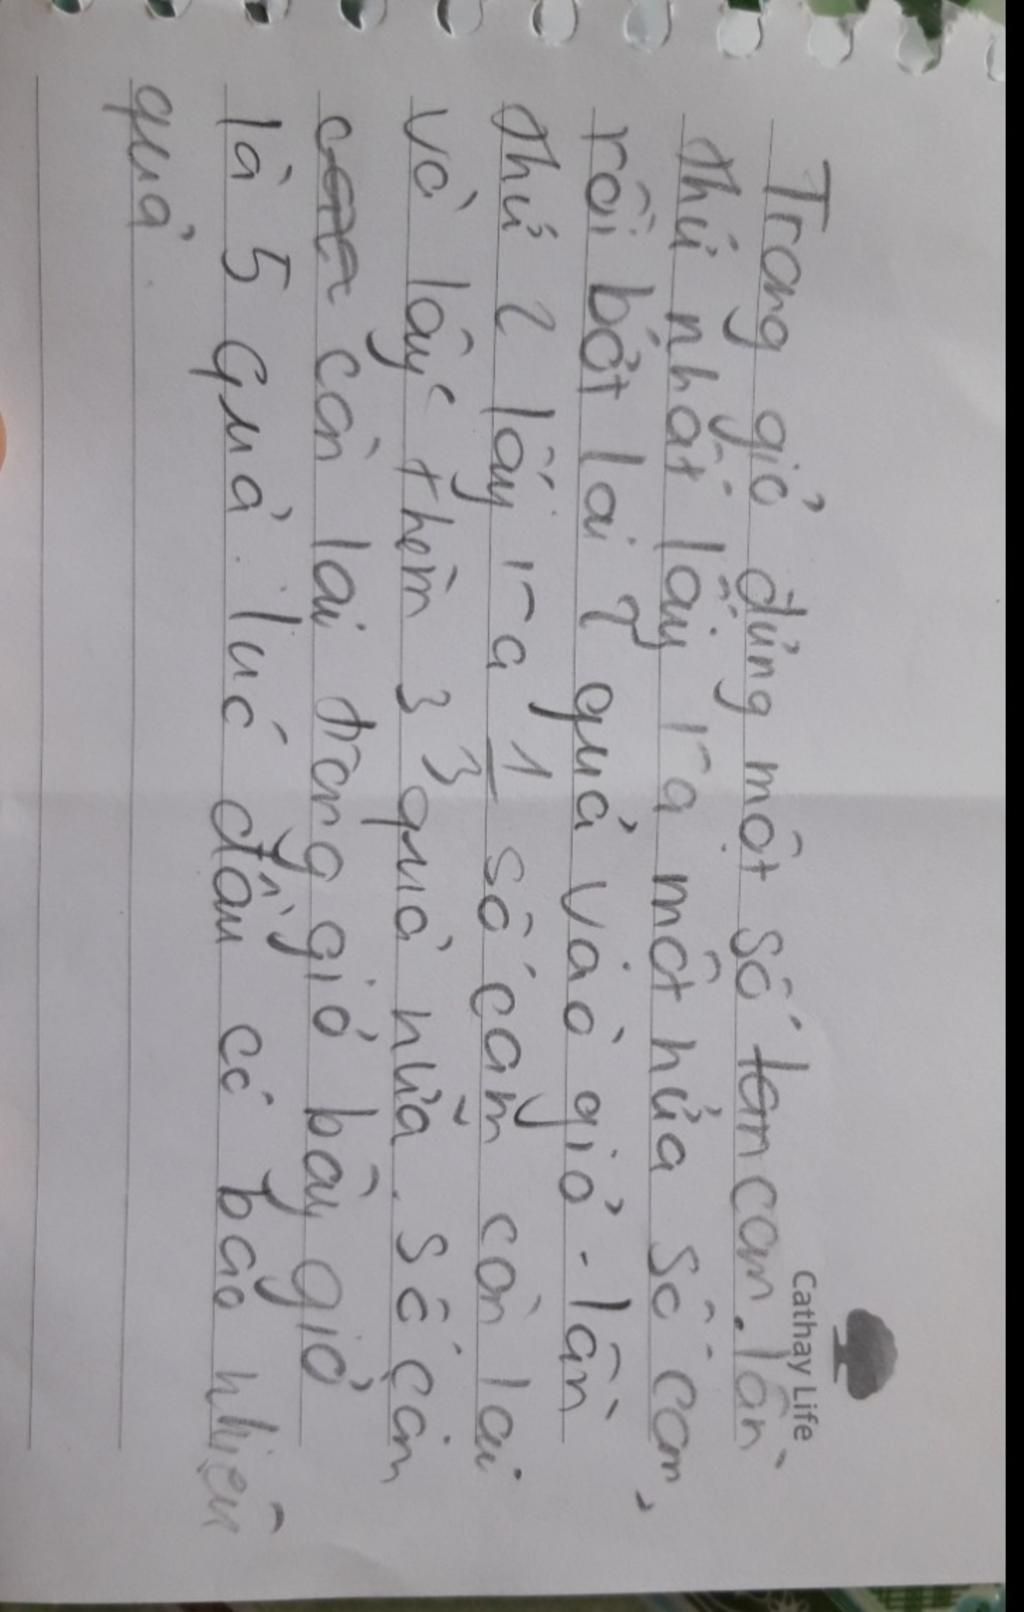 Cathay Life
Trong giỏ đựng một số cam. lần
thứ nhất lấy ra một nửa số cam,
rồi bớt lại 2 quả vào giỏ. lần
thứ 2 lấy ra 1/3 số cam còn lại
và lấy thêm 3 quả nữa. số cam
còn lại trong giỏ bây giờ
là 5 quả. lúc đầu có bao nhiêu
quả.